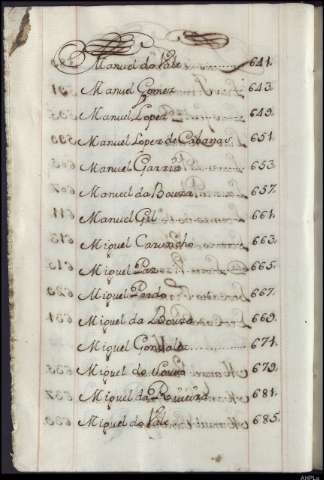 Manuel do Vale 641.
Manuel Gomez 643.
Manuel Lopez 649.
Manuel Lopez de Cabanas 651.
Manuel Garzia 653.
Manuel da Bouza 657.
Manuel Gil 661.
Miguel 663.
Miguel Paz 665.
Miguel Pardo 667.
Miguel da Bouza 669.
Miguel Gonsalez 671.
Miguel do Couto 679.
Miguel da Riueira 681.
Miguel do Vale 685.
AHPLu